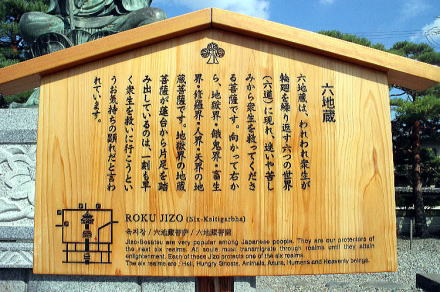 六地蔵
六地蔵は、われわれ衆生が
輪廻を繰り返す六つの世界
(六道)に現れ、迷いや苦し
みから衆生を救ってくださ
る菩薩です。向かって右か
ら、地獄界・餓鬼界・畜生
界・修羅界・人界・天界の地
蔵菩薩です。地獄界の地蔵
菩薩が蓮台から片足を踏
み出しているのは、一刻も早
く衆生を救いに行こうとい
うお気持ちの顕れだと言わ
れています。
ROKU JIZO (Six-Ksitigarbha)
육지장 / 六地藏菩萨 / 六地藏菩薩
Jizo-Bosatsu are very popular among Japanese people. They are our protectors of
the next six realms. All souls must transmigrate through realms until they attain
enlightenment. Each of these Jizo protects one of the six realms.
The six realms are : Hell, Hungry Ghosts, Animals, Asura, Humans and Heavenly beings.